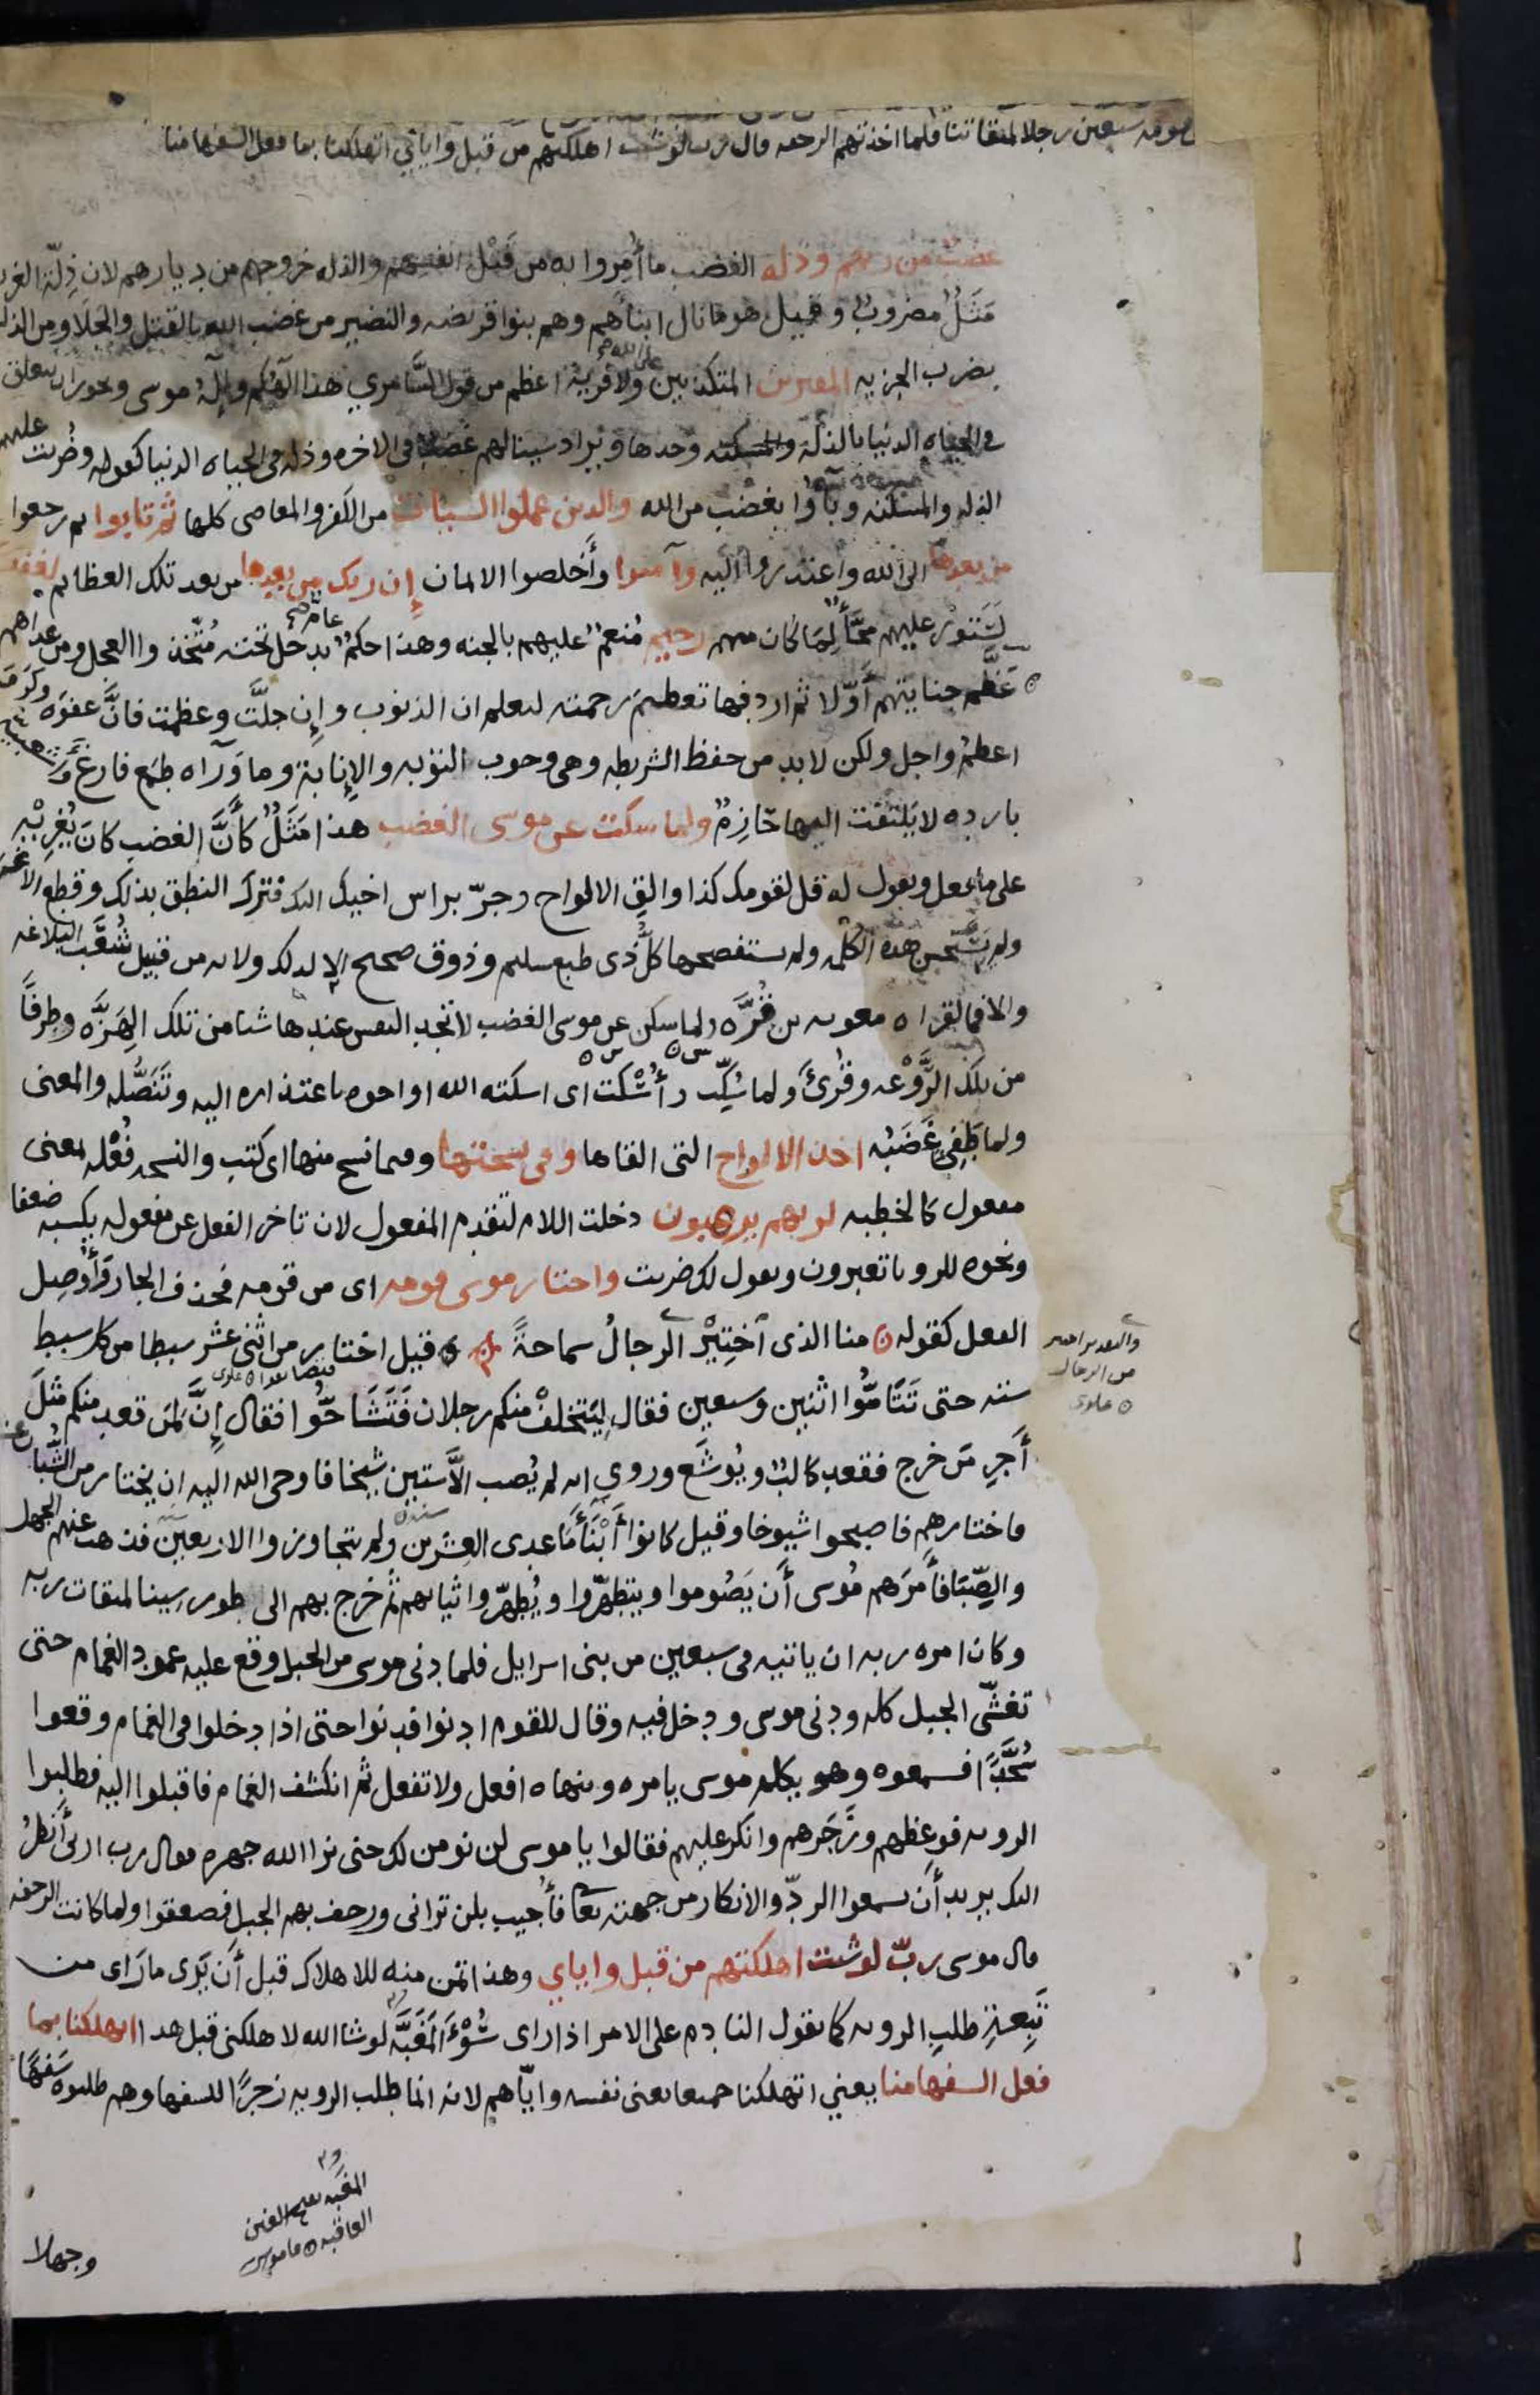 قومه سبعين رجلا لميقاتنا فلما اخذتهم الرجفه قال رب لو شئت اهلكتهم من قبل واياي اتهلكنا بما فعل السفها منا
غضب من ربهم وذله الغضب ما أُمِروا به من قَبْل انفسهم والذله خروجهم من ديارهم لان ذِلّة الغربه
مَثَلٌ مضروبٌ وقيل هو ما نال ابناءَهم وهم بنوا قريظه والنضير من غضب الله بالقتل والجَلَا ومن الذله
بضرب الجزيه المفترين المتكذبين على الله ولا فرية اعظم من قول السَّامري هذا الهكم وإلهُ موسى ويجوز ان يتعلق
في الحياه الدنيا بالذلة والمسكنه وحدها ويراد سينالهم غضب في الاخره وذله في الحياه الدنيا كقوله وضُربت عليهم
الذله والمسكنه وبآوا بغضب من الله والذين عملوا السيئات من الكفر والمعاصي كلها ثم تابوا ثم رجعوا
من بعدها الى الله واعتذروا اليه وآمنوا وأَخلصوا الايمان إن ربك من بعدها من بعد تلك العظايم لغفور
لَسَتُورٌ عليهم مَحَّآءٌ لِمَا كان منهم رحيم مُنعمٌ عليهم بالجنه وهذا حكمٌ عامّ يدخل تحته مُتّخذوا العجل ومن عداهم
عَظَّم جنايتهم أوّلا ثم اردفها تعظيمَ رحمته ليعلم ان الذنوب وإن جلَّت وعظمت فانَّ عفوَه وكَرَمَه
اعظمُ واجل ولكن لا بد من حفظ الشريطه وهي وجوب التوبه والإنابة وما وَرآه طمع فارغ وأشعبية
بارده لا يلتفت اليها حَازِمٌ ولما سكت عن موسى الغضب هذا مَثَلٌ كأَنَّ الغضب كانَ يُغرِيْه
على ما فعل ويقول له قل لقومك كذا والقِ الالواح وجرّ براس اخيك اليك فترك النطق بذلك وقطع الاغرا
ولم يَستحسن هذه الكلمه ولم يستفصحها كلُّ ذي طبع سليم وذوق صحيح الا لذلك ولانه من قبيل شُعَبِ البلاغه
والا فما لقراه معويه بن قُرَّه ولما سكن عن موسى الغضب لا تجد النفس عندها شيا من تلك الهِزَّه وطرفاً
من تلك الرَّوْعه وقُرئ ولما سُكِّت وأُسْكت اى اسكته الله او اخوه باعتذاره اليه وتَنَصُّله والمعنى
ولما طَفِئ غَضَبُه اخذ الالواح التى القاها وفي نسختها وفيما نسخ منها اى كتب والنسخه فُعْله بمعنى
مفعول كالخطبه لربهم يرهبون دخلت اللام لتقدم المفعول لان تاخر الفعل عن مفعوله يكسبه ضعفا
ونحوه للرويا تعبرون وتقول لك ضربت واختار موسى قومه اى من قومه فحذف الجار وأُوْصِل
الفعل كقوله منا الذى اخْتِيْرَ الرجالُ سماحةً قيل اختار من اثنى عشر سبطا من كل سبط
سته حتى تَتَامُّوا اثنين وسبعين فقال لِيَتخلفْ منكم رجلان فَتَشَاحُّوا فقال إِنَّ لمن قعد منكم مثلَ
أَجرِ مَن خرج فقعد كالبُ ويُوشَع وروي انه لم يُصب الاّ ستين شيخا فاوحى الله اليه ان يختار من الشُّبان
فاختارهم فاصبحوا شيوخا وقيل كانوا أَبْنَآءَ ما عدى العشرين ولم يتجاوزوا الاربعين فذهب عنهم الجهل
والصِّبَا فأَمَرَهم مُوسى أَن يَصُوموا ويتطهّروا ويُطهّروا ثيابهم ثم خرج بهم الى طور سِينا لميقات ربه
وكان امره ربه ان ياتيه في سبعين من بنى اسرايل فلما دنى موسى من الجبل وقع عليه عمود الغمام حتى
تغشّى الجبل كله ودنى موسى ودخل فيه وقال للقوم ادنوا فدنوا حتى اذا دخلوا في الغمام وقعوا
سُجَّدًا فسمعوه وهو يكلم موسى يامره وينهاه افعل ولا تفعل ثم انكشف الغمام فاقبلوا اليه فطلبوا
الرويه فوعظهم وزَجَرهم وانكر عليهم فقالوا يا موسى لن نومن لك حتى نرا الله جهره فقال رب ارنى أَنظُر
اليك يريد أَن يسمعوا الردّ والانكار من جهته تعا فأُجيب بلن ترانى ورجف بهم الجبل فصعقوا ولما كانت الرجفه
قال موسى ربّ لو شئت اهلكتهم من قبل واياي وهذا تمن منه للاهلاك قبل أَن يَرَى ما رَاى من
تَبِعَةِ طلبِ الرويه كما يقول النادم على الامر اذا راى سُوْءَ المَغَبَّه لو شا الله لاهلكنى قبل هذا اتهلكنا بما
فعل السفها منا يعني اتهلكنا جميعا يعنى نفسه وايّاهم لانه انما طلب الرويه زجرًا للسفها وهم طلبوه سَفَهًا
والتقدير اختير
من الرجال
علوى
المغبه بفتح الغين
العاقبه قاموس
وجهلا